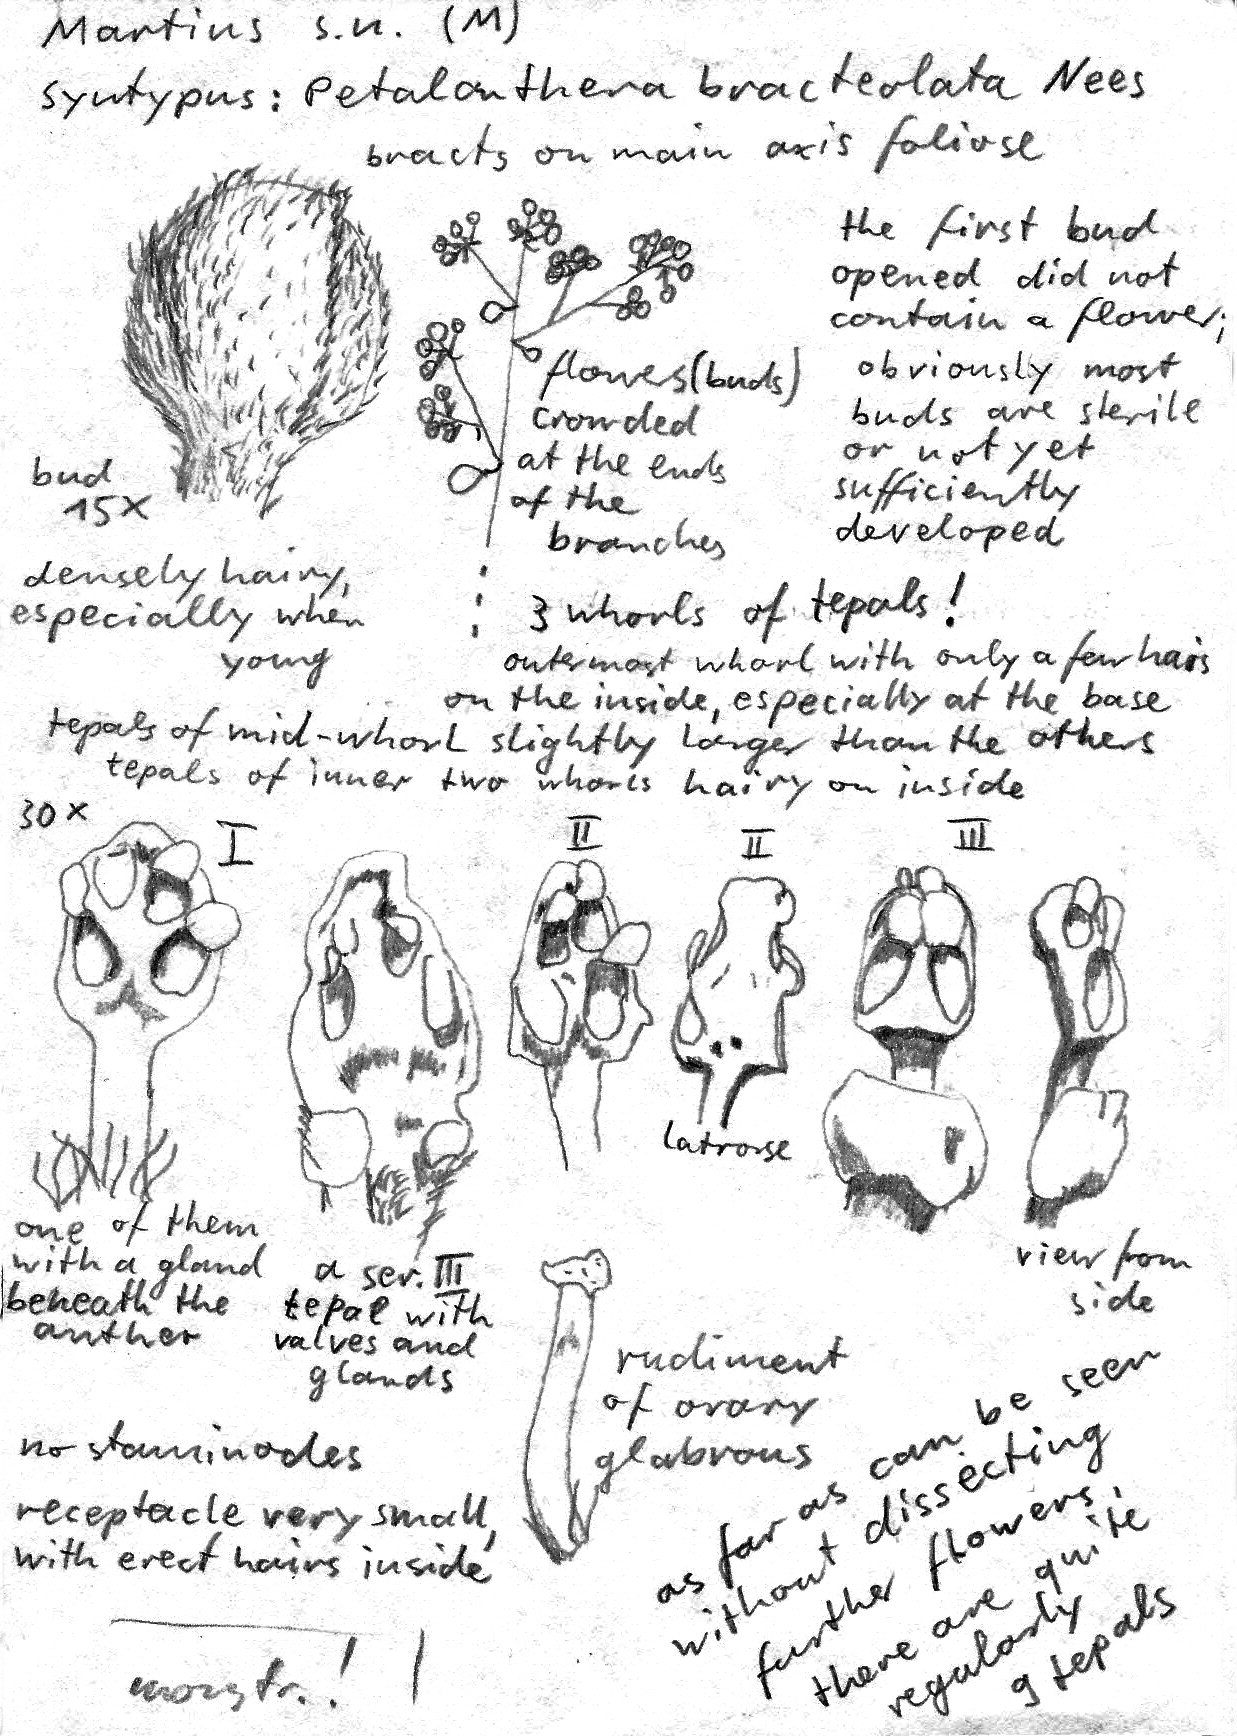 Martius s.n. (M)
Syntypus: Petalanthera bracteolata Nees
bracts on main axis foliose
the first bud
opened did not
contain a flower;
obviously most
buds are sterile
or not yet
sufficiently
developed
flowers (buds)
crowded
at the ends
of the
branches
bud
15x
densely hairy,
especially when
young
3 whorls of tepals!
outermost whorl with only a few hairs
on the inside, especially at the base
tepals of mid-whorl slightly larger than the others
tepals of inner two whorls hairy on inside
30x
I
II
II
III
latrorse
one of them
with a gland
beneath the
anther
a ser. III
tepal with
valves and
glands
view from
side
rudiment
of ovary
glabrous
no staminodes
receptacle very small,
with erect hairs inside
as far as can be seen
without dissecting
further flowers,
there are quite
regularly
9 tepals
monstr.!